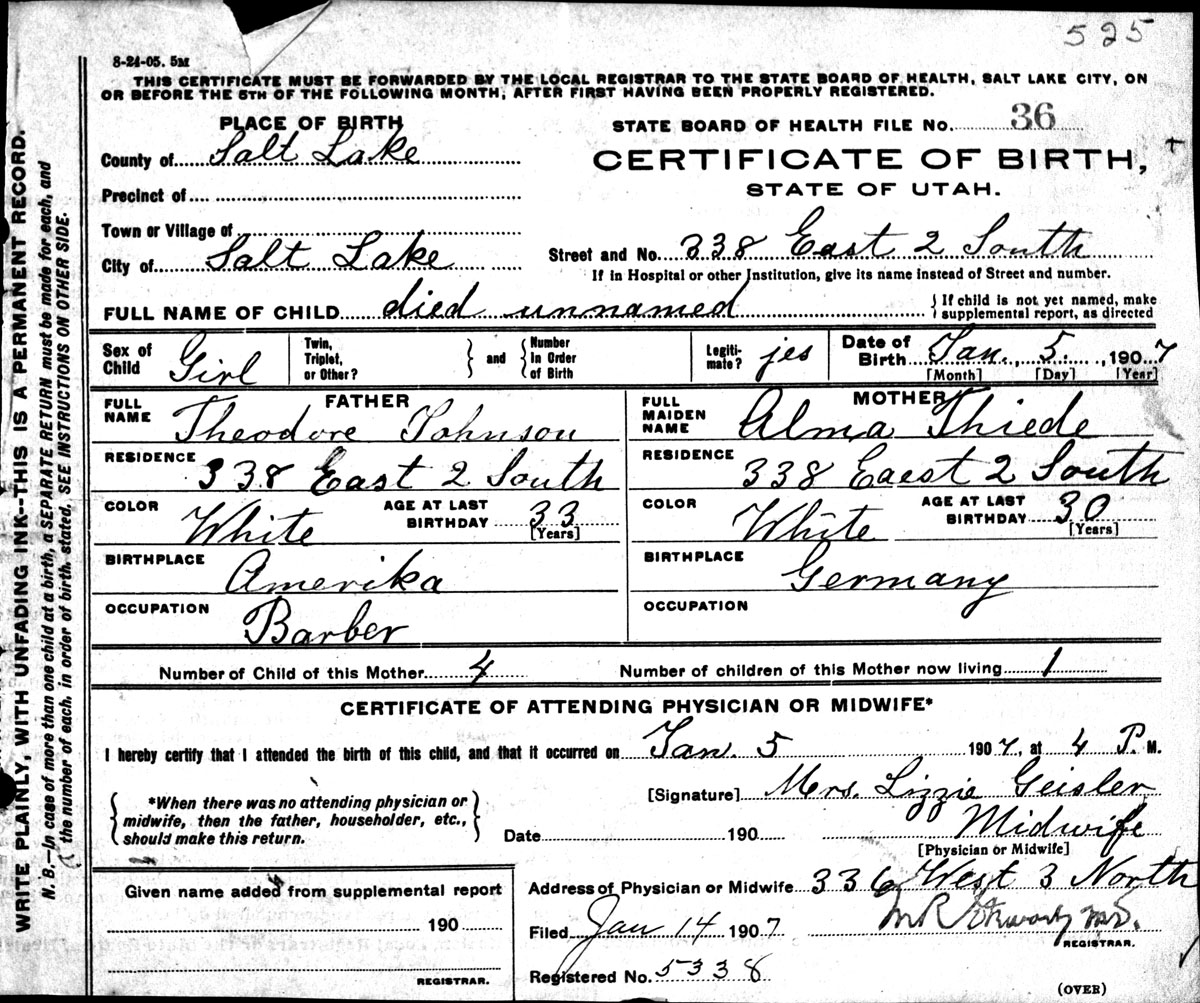 525
8-24-05. 5M
THIS CERTIFICATE MUST BE FORWARDED BY THE LOCAL REGISTRAR TO THE STATE BOARD OF HEALTH, SALT LAKE CITY, ON
OR BEFORE THE 5TH OF THE FOLLOWING MONTH, AFTER FIRST HAVING BEEN PROPERLY REGISTERED.
WRITE PLAINLY, WITH UNFADING INK--THIS IS A PERMANENT RECORD.
N. B.—In case of more than one child at a birth, a SEPARATE RETURN must be made for each, and
the number of each, in order of birth, stated. SEE INSTRUCTIONS ON OTHER SIDE.
PLACE OF BIRTH
County of Salt Lake
Precinct of
Town or Village of
City of Salt Lake
STATE BOARD OF HEALTH FILE No. 36
CERTIFICATE OF BIRTH,
STATE OF UTAH.
Street and No. 338 East 2 South
If in Hospital or other Institution, give its name instead of Street and number.
FULL NAME OF CHILD died unnamed
{ If child is not yet named, make
supplemental report, as directed
Sex of Child Girl
Twin, Triplet, or Other? } and { Number in Order of Birth
Legitimate? jes
Date of Birth Jan. 5. 1907
[Month] [Day] [Year]
FATHER
FULL NAME Theodore Johnson
RESIDENCE 338 East 2 South
COLOR White AGE AT LAST BIRTHDAY 33 [Years]
BIRTHPLACE Amerika
OCCUPATION Barber
MOTHER
FULL MAIDEN NAME Alma Thiede
RESIDENCE 338 Eaest 2 South
COLOR White AGE AT LAST BIRTHDAY 30 [Years]
BIRTHPLACE Germany
OCCUPATION
Number of Child of this Mother 4 Number of children of this Mother now living 1
CERTIFICATE OF ATTENDING PHYSICIAN OR MIDWIFE*
I hereby certify that I attended the birth of this child, and that it occurred on Jan. 5 1907, at 4 P. M.
{ *When there was no attending physician or
midwife, then the father, householder, etc.,
should make this return. }
[Signature] Mrs. Lizzie Geisler
Date 190 Midwife
[Physician or Midwife]
Given name added from supplemental report
190
REGISTRAR.
Address of Physician or Midwife 336 West 3 North
Filed Jan 14 1907 M R
REGISTRAR.
Registered No. 5338
(OVER)